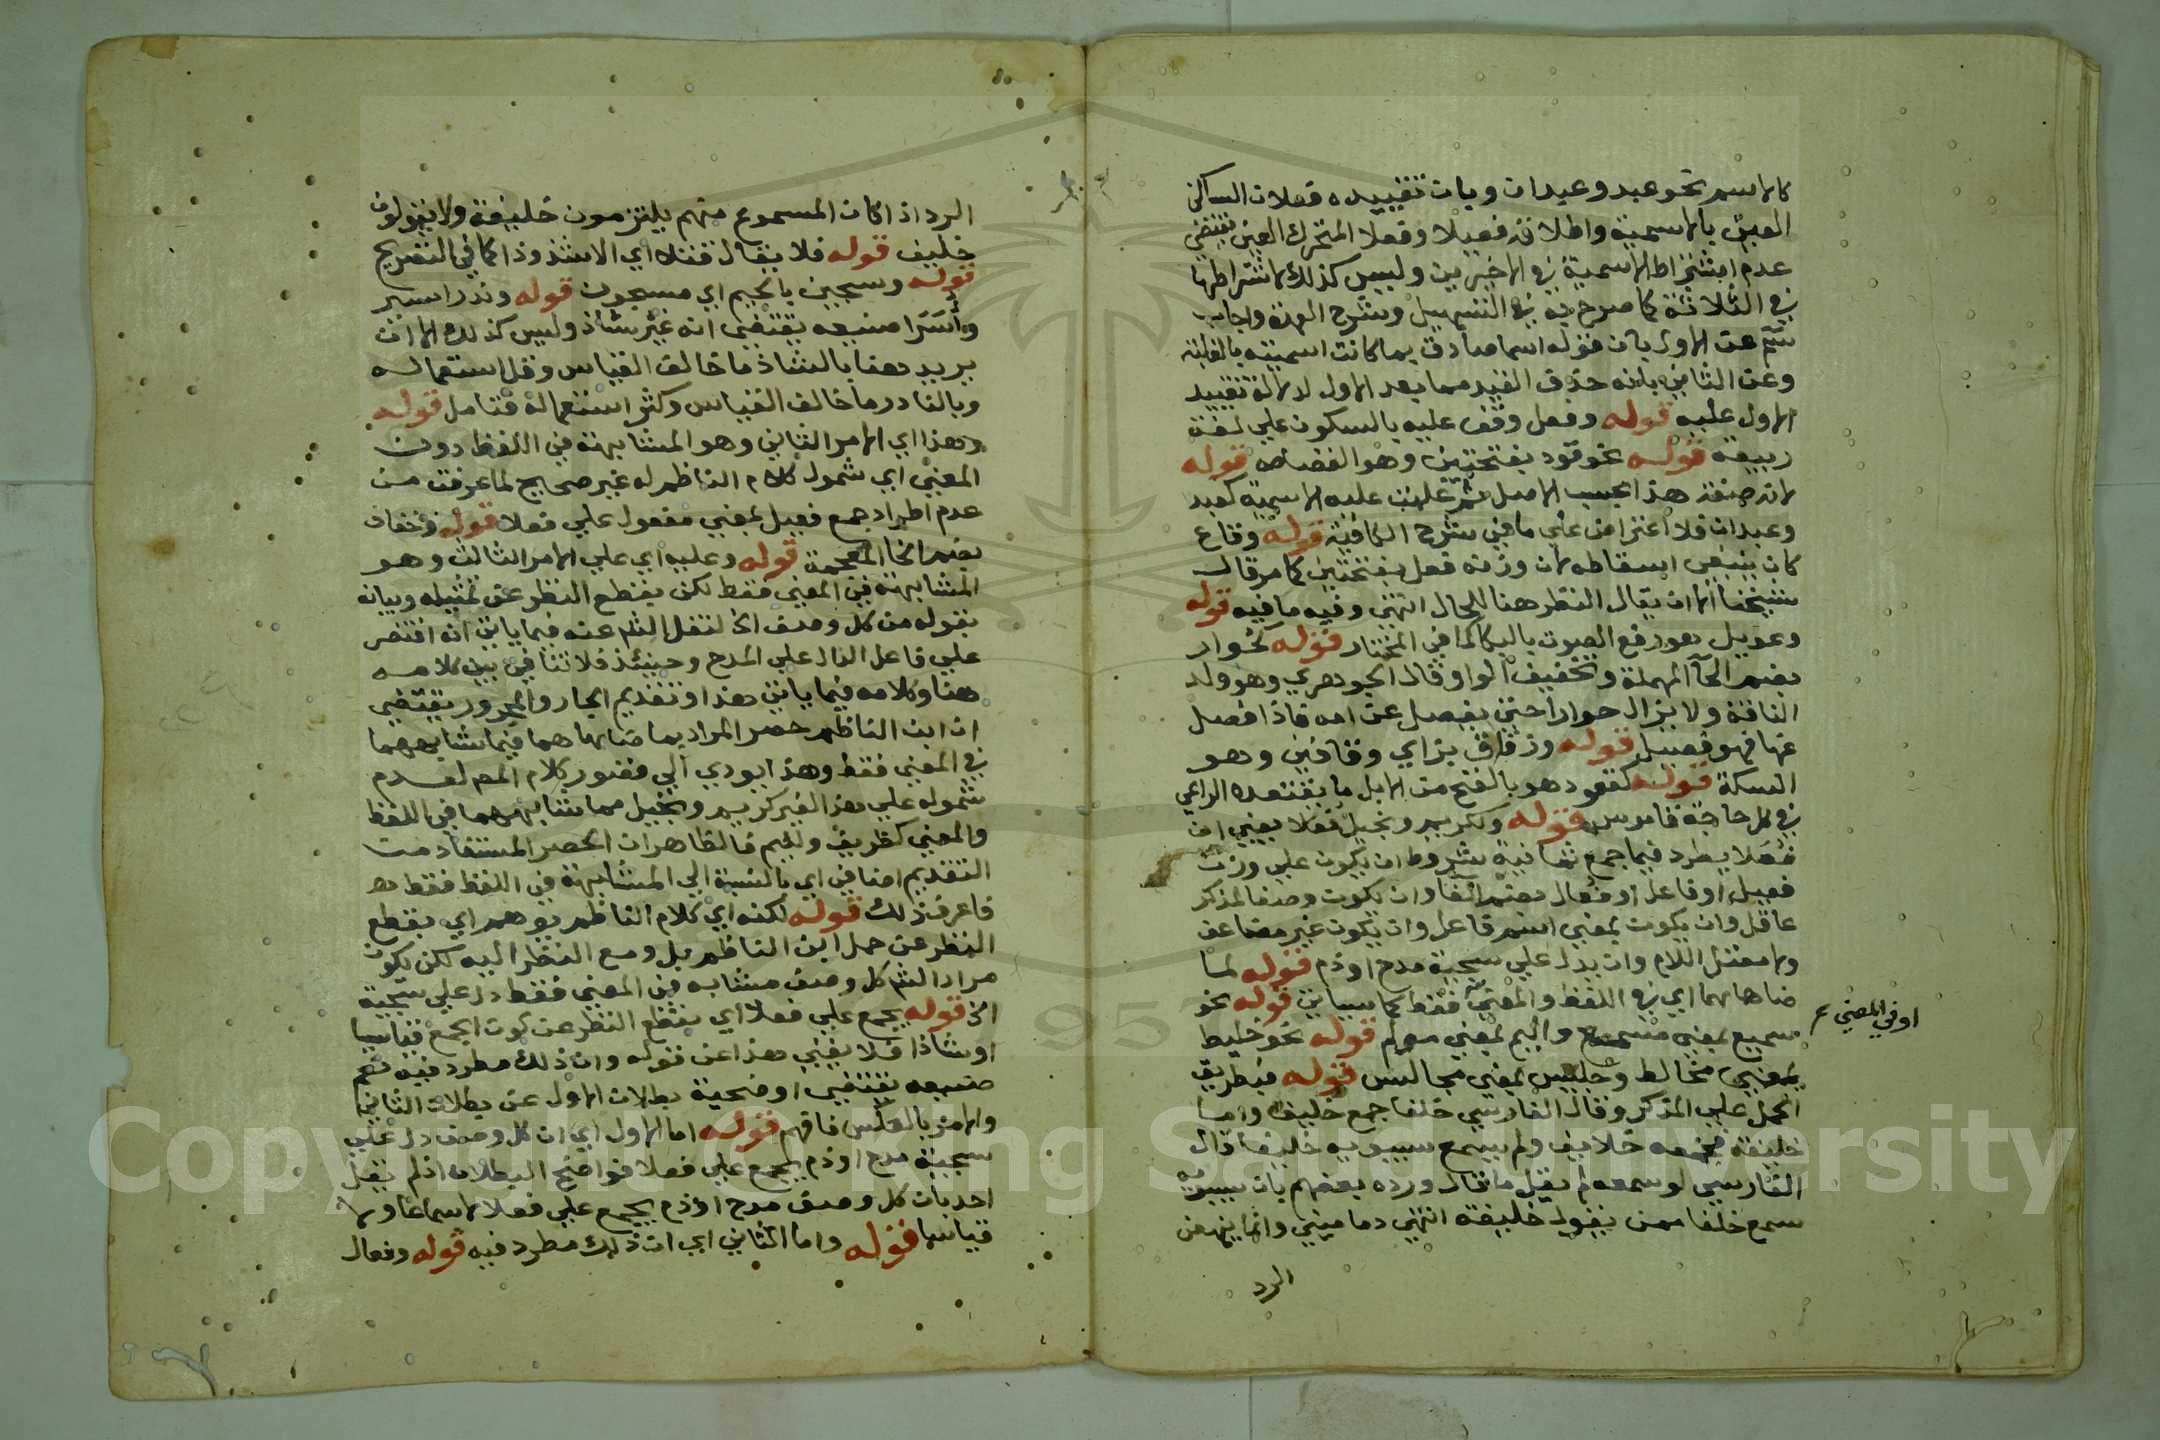 كالاسم نحو عبد وعبدان وبان تقييده فعلان الساكن
العين بالاسمية واطلاقه فعيلا وفعلا المتحرك العين يقتضي
عدم اشتراط الاسمية في الاخيرين وليس كذلك لاشتراطها
في الثلاثة كما صرح به في التسهيل وشرح العمدة واجاب
سم عن الاول بان قوله اسما صادق بما كانت اسميته بالغلبة
وعن الثاني بانه حذف القيد مما بعد الاول لدلالة تقييد
الاول عليه قوله وفعل وقف عليه بالسكون علي لغة
ربيعة قوله نحو قود بفتحتين وهو القصاص قوله
لانه صفة هذا بحسب الاصل ثم غلبت عليه الاسمية كعبد
وعبدان فلا اعتراض علي ما في شرح الكافية قوله وقاع
كان ينبغي اسقاطه لان وزنه فعل بفتحتين كما مر قال
شيخنا الا ان يقال النظر هنا للحال انتهي وفيه ما فيه قوله
وعويل هو رفع الصوت بالبكا كما في المختار قوله كحوار
بضم الحآ المهملة وتخفيف الواو وقال الجوهري وهو ولد
الناقة ولا يزال حوارا حتي يفصل عن امه فاذا فصل
عنها فهو فصيل قوله وزقاق بزاي وقافين وهو
السكة قوله كقعود هو بالفتح من الابل ما يقتعده الراعي
في كل حاجة قاموس قوله ولكريم وبخيل فعلا يعني ان
فعلا يطرد فيما جمع ثمانية شروط ان يكون علي وزن
فعيل او فاعل او فعال بضم الفا وان يكون وصفا لمذكر
عاقل وان يكون بمعني اسم فاعل وان يكون غير مضاعف
ولا معتل اللام وان يدل علي سجية مدح او ذم قوله لما
ضاهاهما اي في اللفظ والمعني فقط كما سياتي قوله نحو
او في المعني
سميع بمعني مسمع واليم بمعني مولم قوله نحو خليط
بمعني مخالط وجليس بمعني مجالس قوله فبطريق
الحمل علي المذكر وقال الفارسي خلفا جمع خليف واما
خليفة فجمعه خلايف ولم يسمع سيبويه خليفا قال
الفارسي لو سمعه لم يقل ما قال ورده بعضهم بان سيبويه
سمع خلفا ممن يقول خليفة انتهي دماميني وانما ينهض
الرد
الرد اذا كان المسموع منهم يلتزمون خليفة ولا يقولون
خليف قوله فلا يقال قتلاء اي الا شذوذا كما في التصريح
قوله وسجين بالجيم اي مسجون قوله وندر اسير
وأسرا صنيعه يقتضي انه غير شاذ وليس كذلك الا ان
يريد هنا بالشاذ ما خالف القياس وقل استعماله
وبالنادر ما خالف القياس وكثر استعماله فتامل قوله
وهذا اي الامر الثاني وهو المشابهة في اللفظ دون
المعني اي شمول كلام الناظم له غير صحيح لما عرفت من
عدم اطراد جمع فعيل بمعني مفعول علي فعلا قوله وخفاف
بضم الخا المعجمة قوله وعليه اي علي الامر الثالث وهو
المشابهة في المعني فقط لكن بقطع النظر عن تمثيله وبيانه
بقوله من كل وصف الخ لنقل الش عنه فيما ياتي انه اقتصر
علي فاعل الدال علي المدح وحينئذ فلا تنافي بين كلامه
هنا وكلامه فيما ياتي هذا وتقديم الجار والمجرور يقتضي
ان ابن الناظم حصر المراد بما ضاهاهما فيما شابههما
في المعني فقط وهذا يودي الي قصور كلام المص لعدم
شموله علي هذا لغير كريم وبخيل مما شابههما في اللفظ
والمعني كظريف ولئيم فالظاهر ان الحصر المستفاد من
التقديم اضافي اي بالنسبة الي المشابهة في اللفظ فقط
فاعرف ذلك قوله لكنه اي كلام الناظم يوهم اي بقطع
النظر عن حمل ابن الناظم بل ومع النظر اليه لكن يكون
مراد الش كل وصف مشابه في المعني فقط دل علي سجية
الخ قوله يجمع علي فعلا اي بقطع النظر عن كون الجمع قياسيا
او شاذا فلا يغني هذا عن قوله وان ذلك مطرد فيه نعم
صنيعه يقتضي اوضحية بطلان الاول عن بطلان الثاني
والامر بالعكس فافهم قوله اما الاول اي ان كل وصف دل علي
سجية مدح او ذم يجمع علي فعلا فواضح البطلان اذ لم يقل
احد بان كل وصف مدح او ذم يجمع علي فعلا لا سماعا ولا
قياسا قوله واما الثاني اي ان ذلك مطرد فيه قوله وفعال
Copyright © King Saud University